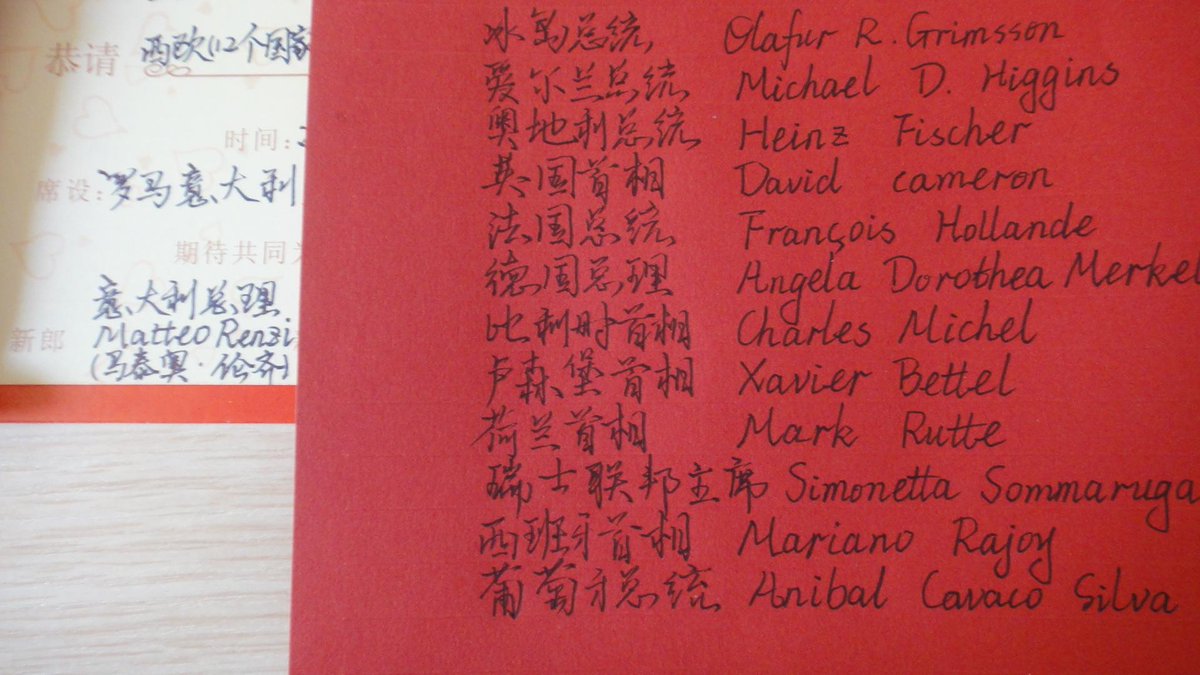 恭请 西欧(12个国家
时间:2
席设: 罗马意大利
期待共同为
意大利总理
新郎 Matteo Renzi
(马泰奥·伦齐)
冰岛总统 Olafur R. Grimsson
爱尔兰总统 Michael D. Higgins
奥地利总统 Heinz Fischer
英国首相 David cameron
法国总统 François Hollande
德国总理 Angela Dorothea Merkel
比利时首相 Charles Michel
卢森堡首相 Xavier Bettel
荷兰首相 Mark Rutte
瑞士联邦主席 Simonetta Sommaruga
西班牙首相 Mariano Rajoy
葡萄牙总统 Anibal Cavaco Silva